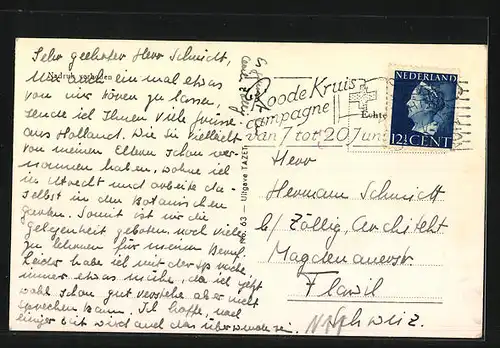 Sehr geehrter Herr Schmidt,
Um auch einmal etwas
von mir hören zu lassen,
sende ich Ihnen viele Grüsse
aus Holland. Wie Sie vielleicht
von meinen Eltern schon ver-
nommen haben, wohne ich
in Utrecht und arbeite da-
selbst in den Botanischen
Gärten. Somit ist mir die
Gelegenheit geboten noch viel
zu lernen für meinen Beruf.
Leider habe ich mit der Sprache
immer etwas mühe, da ich jetzt
wohl schon gut verstehe aber nicht
sprechen kann. Ich hoffe, nach
einiger Zeit wird auch das überwunden sein.
Roode Kruis-
campagne
van 7 tot 20 Juni
NEDERLAND
12½ CENT
Echte
No. 63 — Uitgave TAZET
Herr
Hermann Schmidt
b/ Zöllig, Architekt
Magdenauerstr.
Flawil
Schweiz.